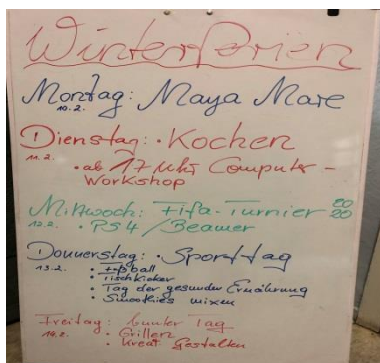 Winterferien
Montag: Maya Mare
10.2.
Dienstag: • Kochen
11.2.
• ab 17 Uhr Computer-
Workshop
Mittwoch: Fifa-Turnier 2020
12.2.
• PS4 / Beamer
Donnerstag: • Sporttag
13.2.
• Fußball
• Tischkicker
• Tag der gesunden Ernährung
• Smoothies mixen
Freitag: bunter Tag
14.2.
• Grillen
• Kreat. Gestalten